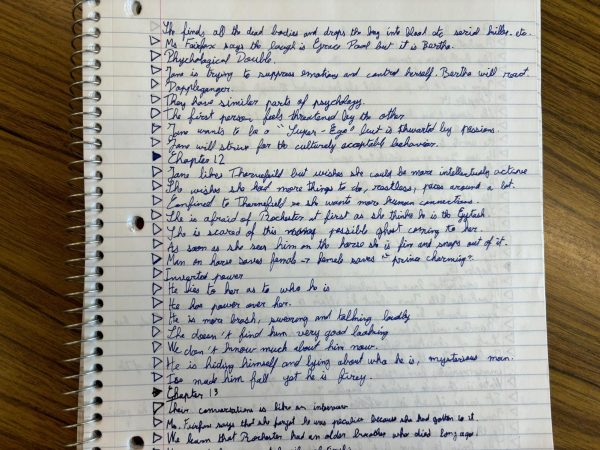 She finds all the dead bodies and drops the key into blood etc serial killer etc.
Ms Fairfax says the laugh is Grace Pool but it is Bertha.
Phychological Double.
Jane is trying to suppress emotions and control herself. Bertha will react.
Doppleganger.
They have similar parts of psychology.
The first person feels threatened by the other
Jane wants to be a "Super-Ego" but is thwarted by passions.
Jane will strive for the culturely acceptable behavior.
Chapter 12
Jane likes Thornefeild but wishes she could be more intellectualy active
She wishes she had more things to do, restless, paces around a lot.
Confined to Thornefield so she wants more human connections.
She is afraid of Rochester at first as she thinks he is the Gytrash
She is scared of this possible ghost coming to her.
As soon as she sees him on the horse she is fin and snaps out of it.
Man on horse saves female → female saves "prince charming".
Inverted power
He lies to her as to who he is
He has power over her.
He is more brash, swearing and talking loudly
She doesn't find him very good looking
We don't know much about him now.
He is hiding himself and lying about who he is, mysterious man.
Ice made him fall yet he is firey.
Chapter 13
Their conversations is like an interview
Ms. Fairfax says that she forgot he was peculiar because she had gotten to it.
We learn that Rochester had an older brother who died long ago.